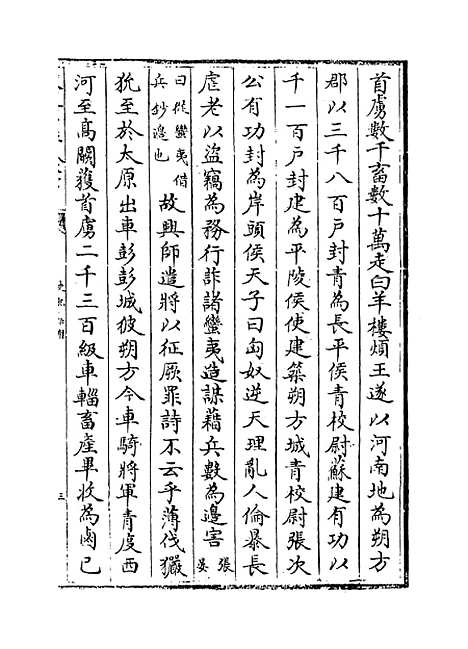 首虜數千畜數十萬走白羊樓煩王遂以河南地為朔方
郡以三千八百戶封青為長平侯青校尉蘇建有功以
千一百戶封建為平陵侯使建築朔方城青校尉張次
公有功封為岸頭侯天子曰匈奴逆天理亂人倫暴長
虐老以盜竊為務行詐諸蠻夷造謀藉兵數為邊害張晏
曰從蠻夷借兵鈔邊也故興師遣將以征厥罪詩不云乎薄伐玁
狁至於太原出車彭彭城彼朔方今車騎將軍青度西
河至高闕獲首虜二千三百級車輜畜產畢收為鹵已
三